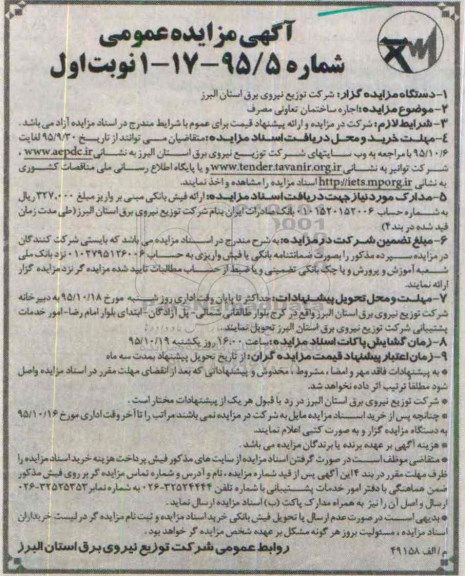 آگهی مزایده عمومی
شماره ۹۵/۵-۱۷-۱ نوبت اول
۱-دستگاه مزایده گزار: شرکت توزیع نیروی برق استان البرز
۲-موضوع مزایده: اجاره ساختمان تعاونی مصرف
۳-شرایط لازم: شرکت در مزایده و ارائه پیشنهاد قیمت برای عموم با شرایط مندرج در اسناد مزایده آزاد می باشد.
۴-مهلت خرید و محل دریافت اسناد مزایده: متقاضیان می توانند از تاریخ ۹۵/۹/۳۰ لغایت
۹۵/۱۰/۶ با مراجعه به وب سایتهای شرکت توزیع نیروی برق استان البرز به نشانی www.aepdc.ir
شرکت توانیر به نشانی www.tender.tavanir.org.ir و یا پایگاه اطلاع رسانی ملی مناقصات کشوری
به نشانی http://iets.mporg.ir اسناد مزایده را مشاهده و اخذ نمایند.
۵-مدارک مورد نیاز جهت دریافت اسناد مزایده: ارائه فیش بانکی مبنی بر واریز مبلغ ۳۲۷,۰۰۰ ریال
به شماره حساب ۰۱۰۱۵۲۰۱۵۲۰۰۶ بانک صادرات ایران بنام شرکت توزیع نیروی برق استان البرز (طی مدت زمان
قید شده در بند ۴)
۶-مبلغ تضمین شرکت در مزایده: به شرح مندرج در اسناد مزایده می باشد که بایستی شرکت کنندگان
در مزایده سپرده مذکور را بصورت ضمانتنامه بانکی یا فیش واریزی به حساب ۰۱۰۲۷۹۵۱۲۶۰۰۶ نزد بانک ملی
شعبه آموزش و پرورش و یا چک بانکی تضمینی و یا ضبط از حساب مطالبات تایید شده مزایده گر نزد مزایده گزار
ارائه نمایند.
۷-مهلت و محل تحویل پیشنهادات: حداکثر تا پایان وقت اداری روز شنبه مورخ ۹۵/۱۰/۱۸ به دبیرخانه
شرکت توزیع نیروی برق استان البرز واقع در کرج بلوار طالقانی شمالی- پل آزادگان- ابتدای بلوار امام رضا- امور خدمات
پشتیبانی شرکت توزیع نیروی برق استان البرز تحویل نمایند.
۸-زمان گشایش پاکات اسناد مزایده: ساعت ۱۶:۰۰ روز یکشنبه ۹۵/۱۰/۱۹
۹-زمان اعتبار پیشنهاد قیمت مزایده گران: از تاریخ تحویل پیشنهاد بمدت سه ماه
* به پیشنهادات فاقد مهر و امضاء، مشروط، مخدوش و پیشنهاداتی که بعد از انقضای مهلت مقرر در اسناد مزایده واصل
شود مطلقا ترتیب اثر داده نخواهد شد.
* شرکت توزیع نیروی برق استان البرز در رد یا قبول هر یک از پیشنهادات مختار است.
* چنانچه پس از خرید اسناد مزایده مایل به شرکت در مزایده نمی باشند مراتب را تا آخر وقت اداری مورخ ۹۵/۱۰/۱۶
به دستگاه مزایده گزار و به صورت کتبی اعلام نمایند.
* هزینه آگهی بر عهده برنده یا برندگان مزایده می باشد.
* متقاضی موظف است در صورت گرفتن اسناد مزایده از سایت های مذکور فیش پرداخت هزینه خرید اسناد مزایده را
ظرف مهلت مقرر در بند ۴ این آگهی پس از قید شماره مزایده، نام و آدرس و شماره تماس مزایده گر بر روی فیش مذکور
ضمن هماهنگی با دفتر امور خدمات پشتیبانی با شماره تلفن ۳۲۵۲۴۴۴۴-۰۲۶ به شماره نمابر ۳۲۵۲۵۳۵۳-۰۲۶
ارسال و اصل آن را نیز به همراه مدارک پاکت (ب) اسناد مزایده ارسال نماید.
* بدیهی است در صورت عدم ارسال یا تحویل فیش بانکی خرید اسناد مزایده و ثبت نام مزایده گر در لیست خریداران
اسناد مزایده، مسئولیت بروز هر گونه مشکل بر عهده شخص مزایده گر خواهد بود.
روابط عمومی شرکت توزیع نیروی برق استان البرز
م/الف ۴۹۱۵۸